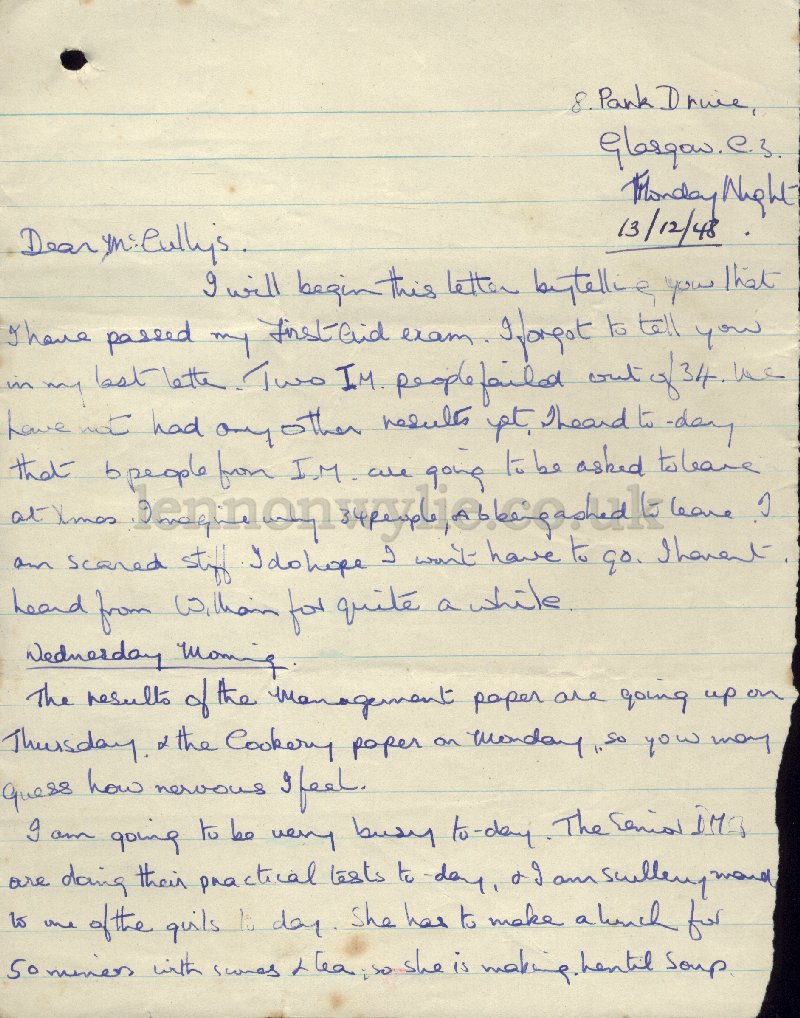 8. Park Drive,
Glasgow. C.3.
Monday Night
13/12/48.
Dear McCully's.
I will begin this letter by telling you that
I have passed my First Aid exam. I forgot to tell you
in my last letter. Two I.M. people failed out of 34. We
have not had any other results yet, I heard to-day
that 6 people from I.M. are going to be asked to leave
at Xmas. Imagine only 34 people, & 6 being asked to leave. I
am scared stiff. I do hope I won't have to go. I havent
heard from William for quite a while.
Wednesday Morning.
The results of the Management paper are going up on
Thursday, & the Cookery paper on Monday, so you may
guess how nervous I feel.
I am going to be very busy to-day. The Senior
are doing their practical tests to-day, & I am scullery maid
to one of the girls to day. She has to make a lunch for
50 miners with & tea, so she is making Lentil Soup.
lennonwylie.co.uk